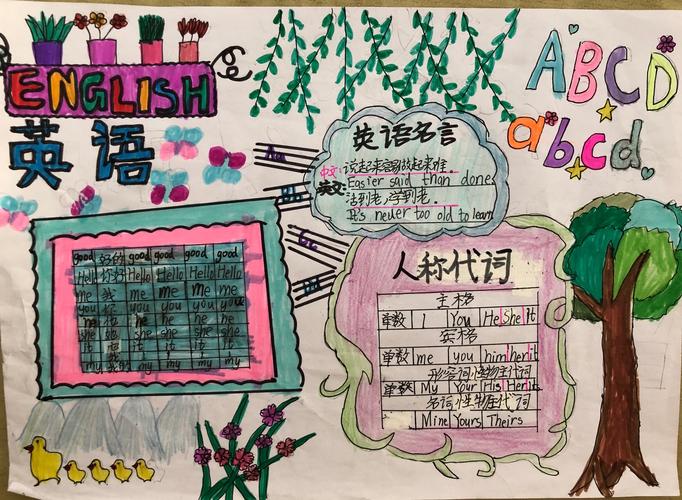 ENGLISH
英语
ABCD
abcd
Aa
英语名言
中文:说起来容易做起来难.
英文:Easier said than done
活到老,学到老.
It's never too old to learn
good 好的 good good good good
Hello 你好 Hello Hello Hello Hello
me 我 me me me me
you 你 you you you you
he 他 he he he he
she 她 she she she she
it 它 it it it it
my 我的 my my my my
人称代词
主格
单数 I You He She it
宾格
单数 me you him her it
形容词性物主代词
单数 My Your His Her its
名词性物主代词
Mine Yours Theirs